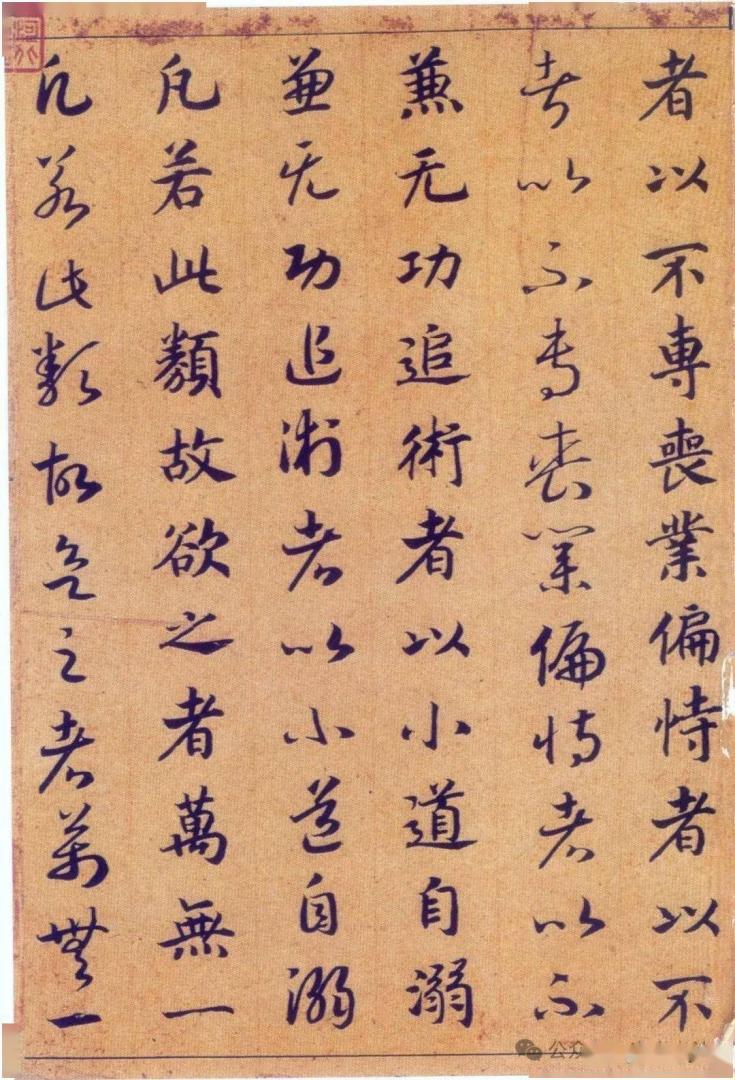 者以不專喪業偏恃者以不
者以不專喪業偏恃者以不
兼无功追術者以小道自溺
兼无功追術者以小道自溺
凡若此類故欲之者萬無一
凡若此類故欲之者萬無一
公众